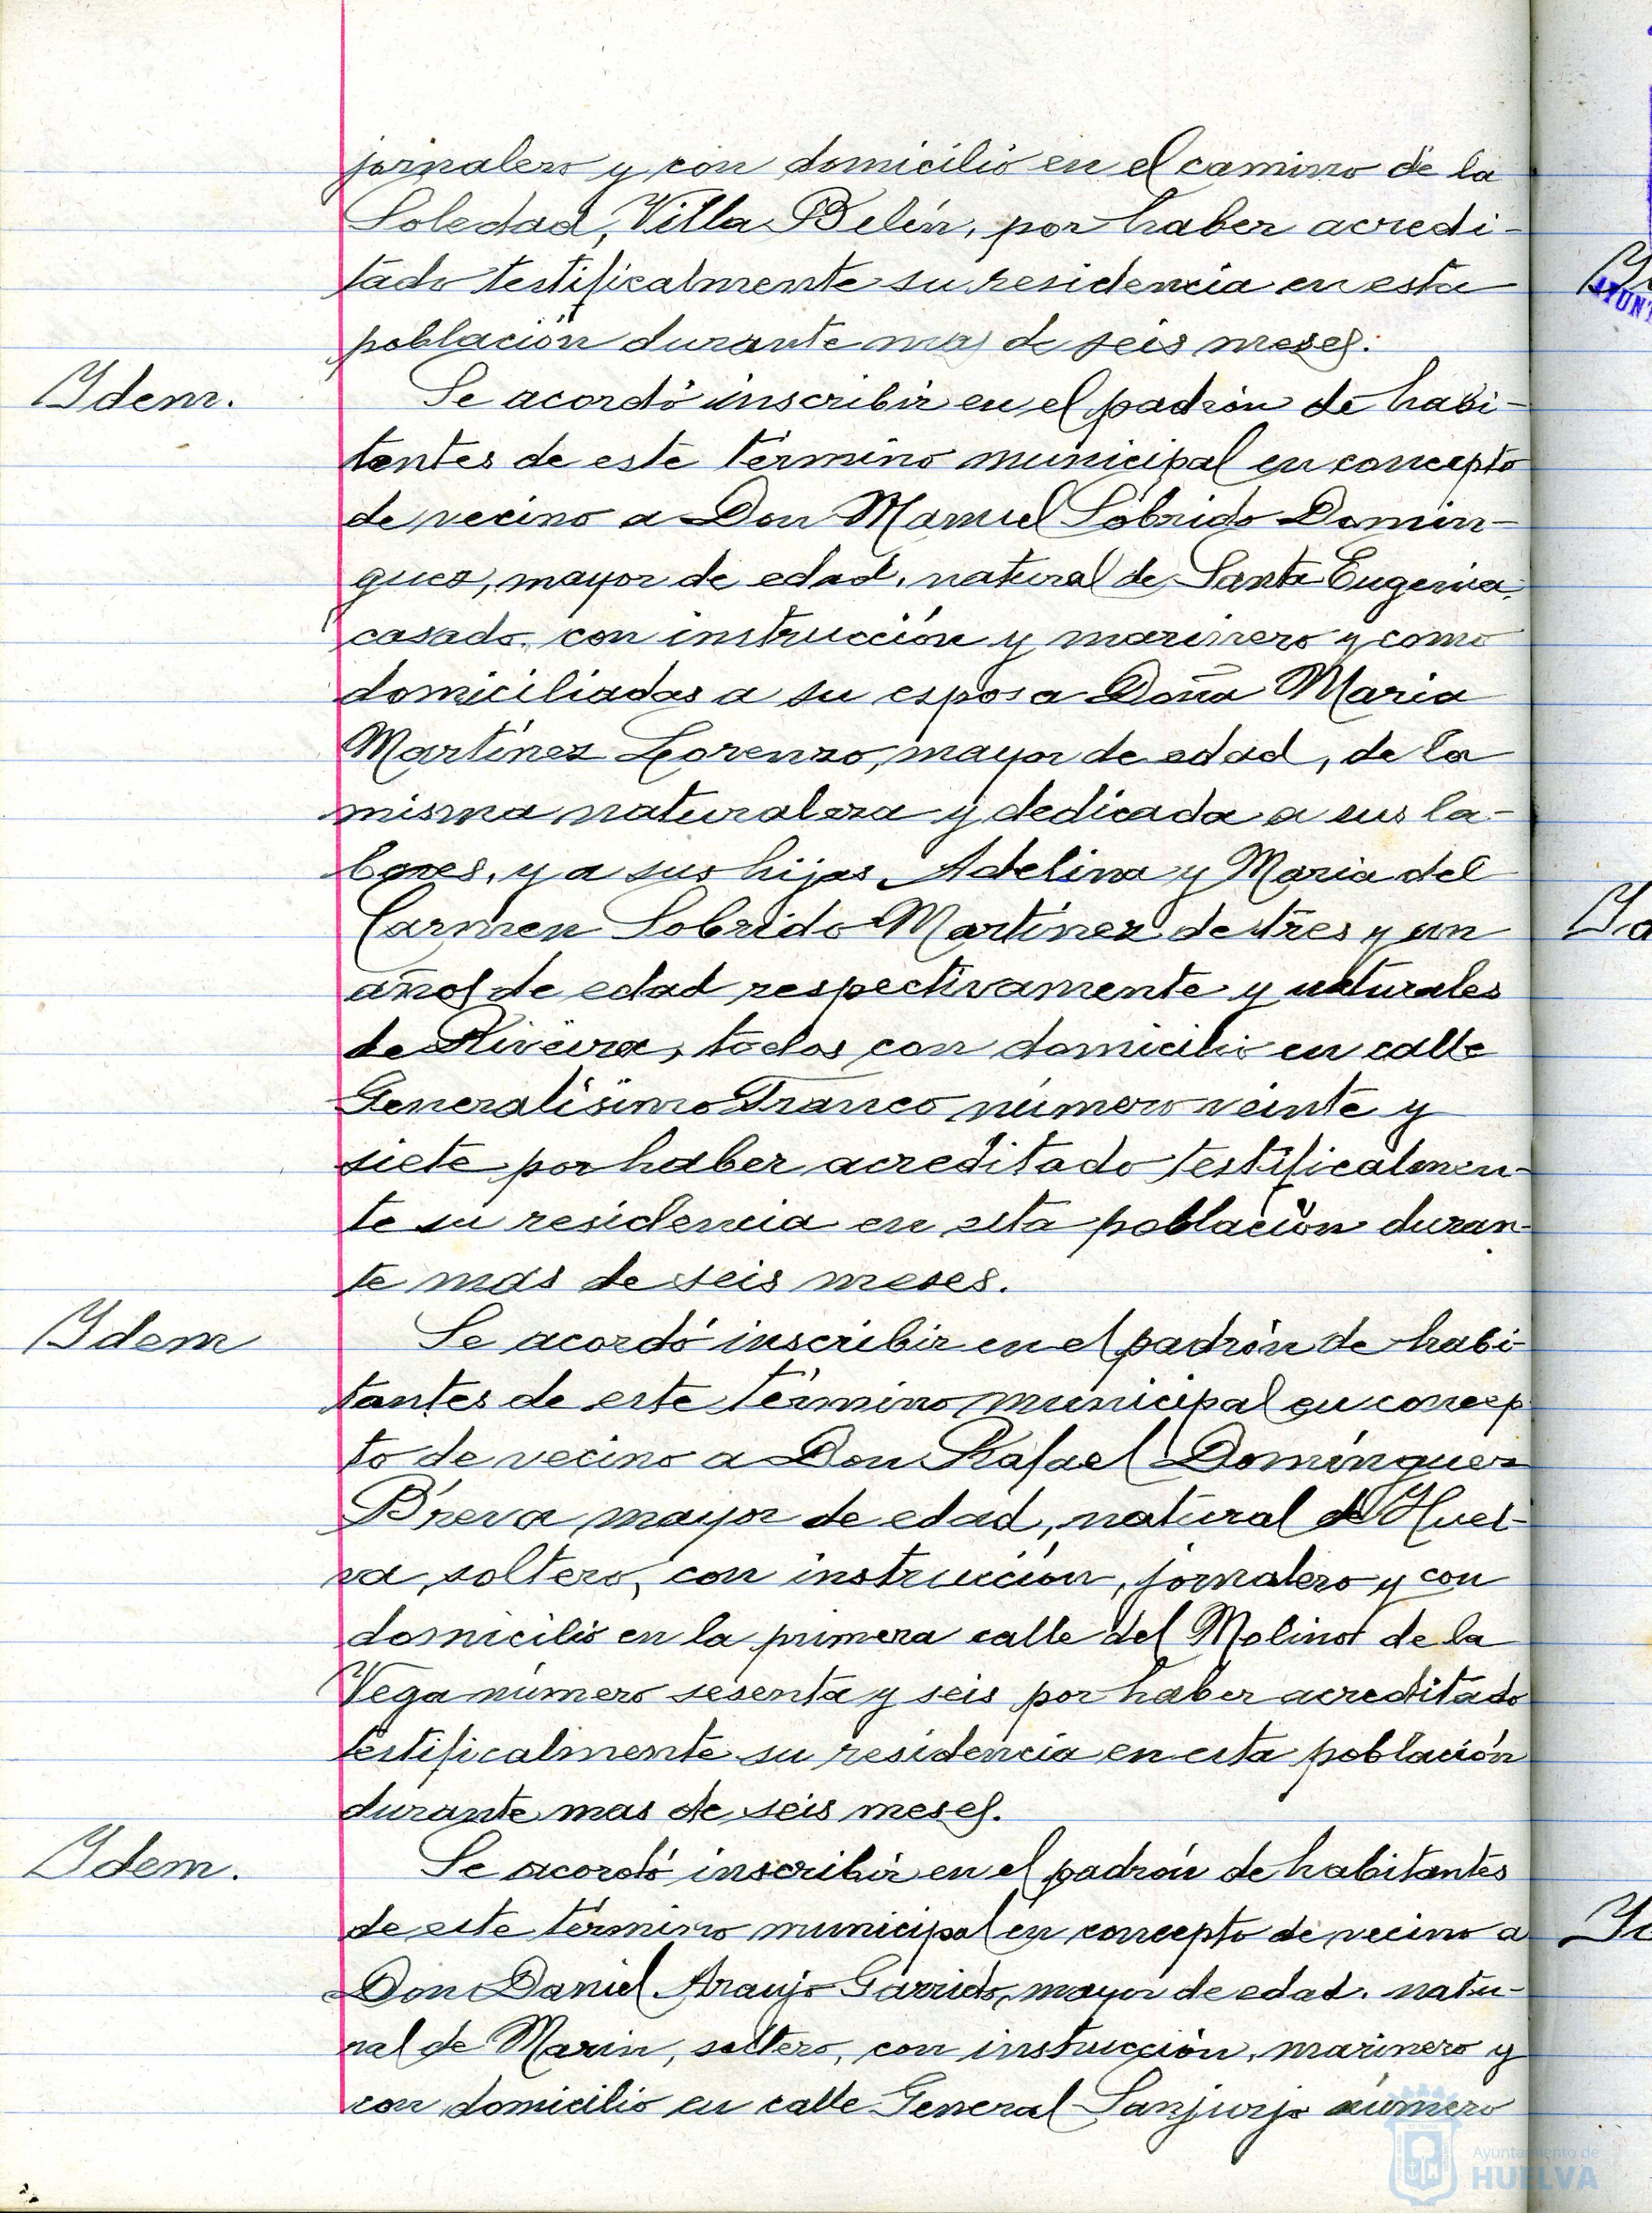 jornalero y con domicilio en el camino de la
Soledad, Villa Belén, por haber acredi-
tado testificalmente su residencia en esta
población durante mas de seis meses.
Idem.
Se acordó inscribir en el padrón de habi-
tantes de este término municipal en concepto
de vecino a Don Manuel Sobrido Domin-
guez, mayor de edad, natural de Santa Eugenia,
casado, con instrucción y marinero y como
domiciliadas a su esposa Doña Maria
Martínez Lorenzo, mayor de edad, de la
misma naturaleza y dedicada a sus la-
bores, y a sus hijas Adelina y Maria del
Carmen Sobrido Martínez de tres y un
años de edad respectivamente y naturales
de Riveira, todos con domicilio en calle
Generalísimo Franco número veinte y
siete por haber acreditado testificalmen-
te su residencia en esta población duran-
te mas de seis meses.
Idem
Se acordó inscribir en el padrón de habi-
tantes de este término municipal en concep
to de vecino a Don Rafael Domínguez
Breva, mayor de edad, natural de Huel-
va, soltero, con instrucción, jornalero y con
domicilio en la primera calle del Molino de la
Vega número sesenta y seis por haber acreditado
testificalmente su residencia en esta población
durante mas de seis meses.
Idem.
Se acordó inscribir en el padrón de habitantes
de este término municipal en concepto de vecino a
Don Daniel Araujo Garrido, mayor de edad, natu-
ral de Marin, soltero, con instrucción, marinero y
con domicilio en calle General Sanjurjo número
Ayuntamiento de
HUELVA
AYUNT